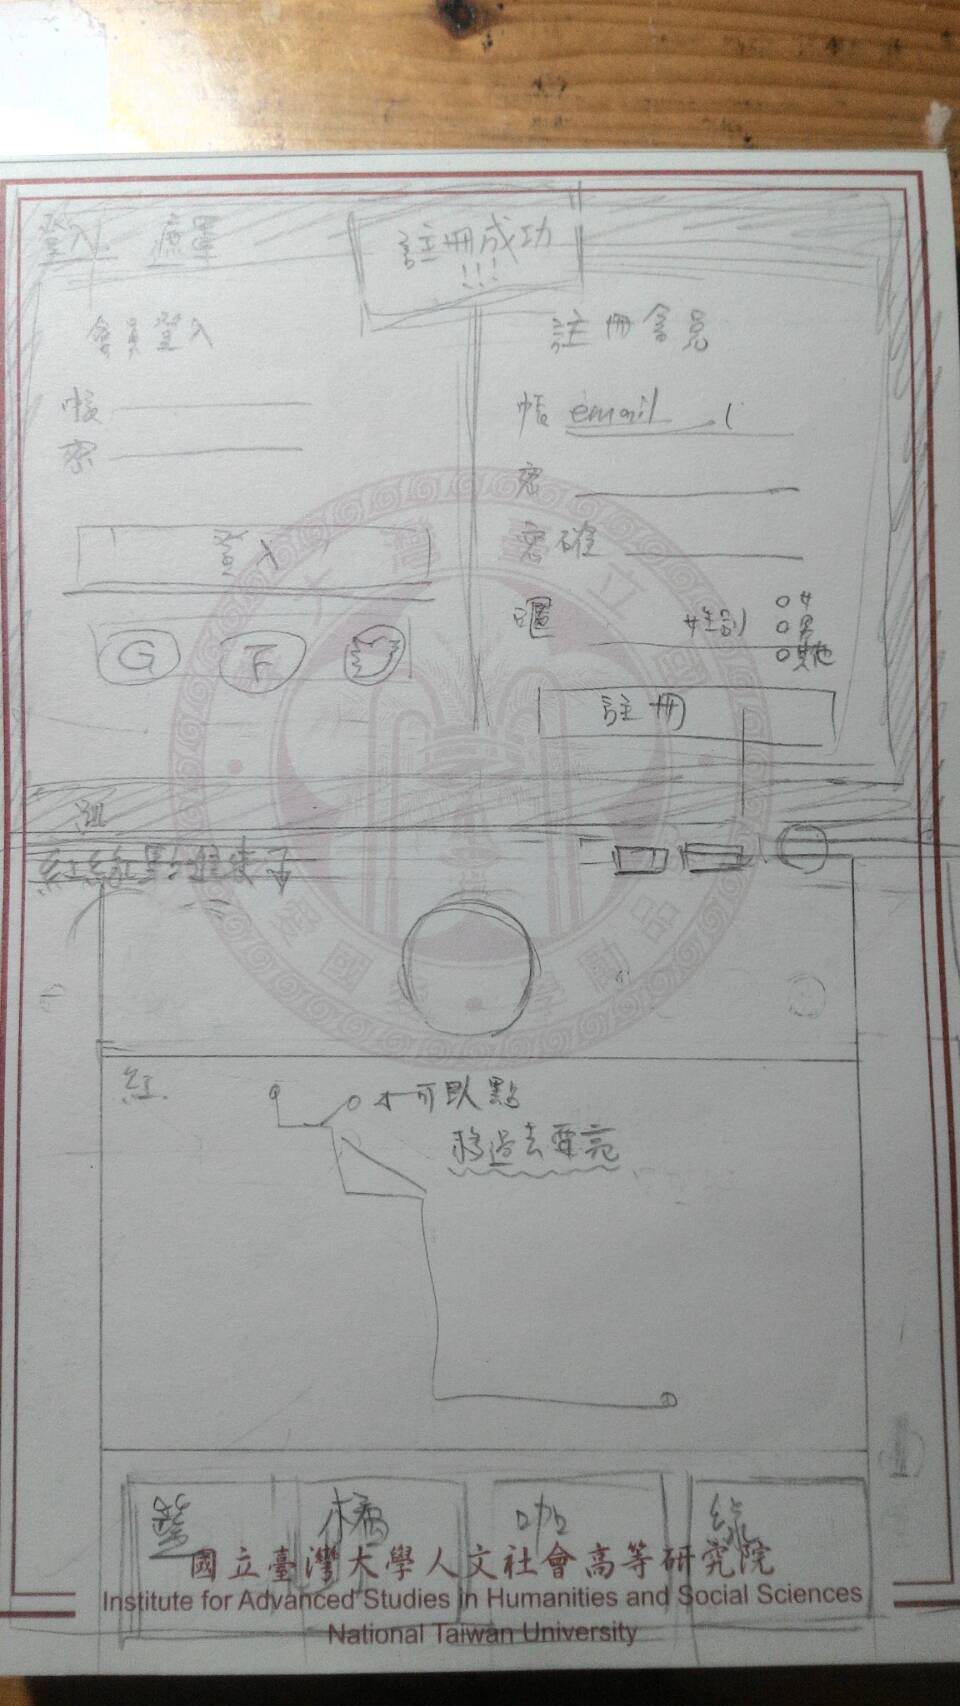 登入
註冊成功
!!!
會員登入
註冊會員
帳
密
帳 email
密
密確
登入
G F
暱
性別
女
男
其他
註冊
紅
可以點
移過去要亮
藍 橘 咖 綠
國立臺灣大學人文社會高等研究院
Institute for Advanced Studies in Humanities and Social Sciences
National Taiwan University